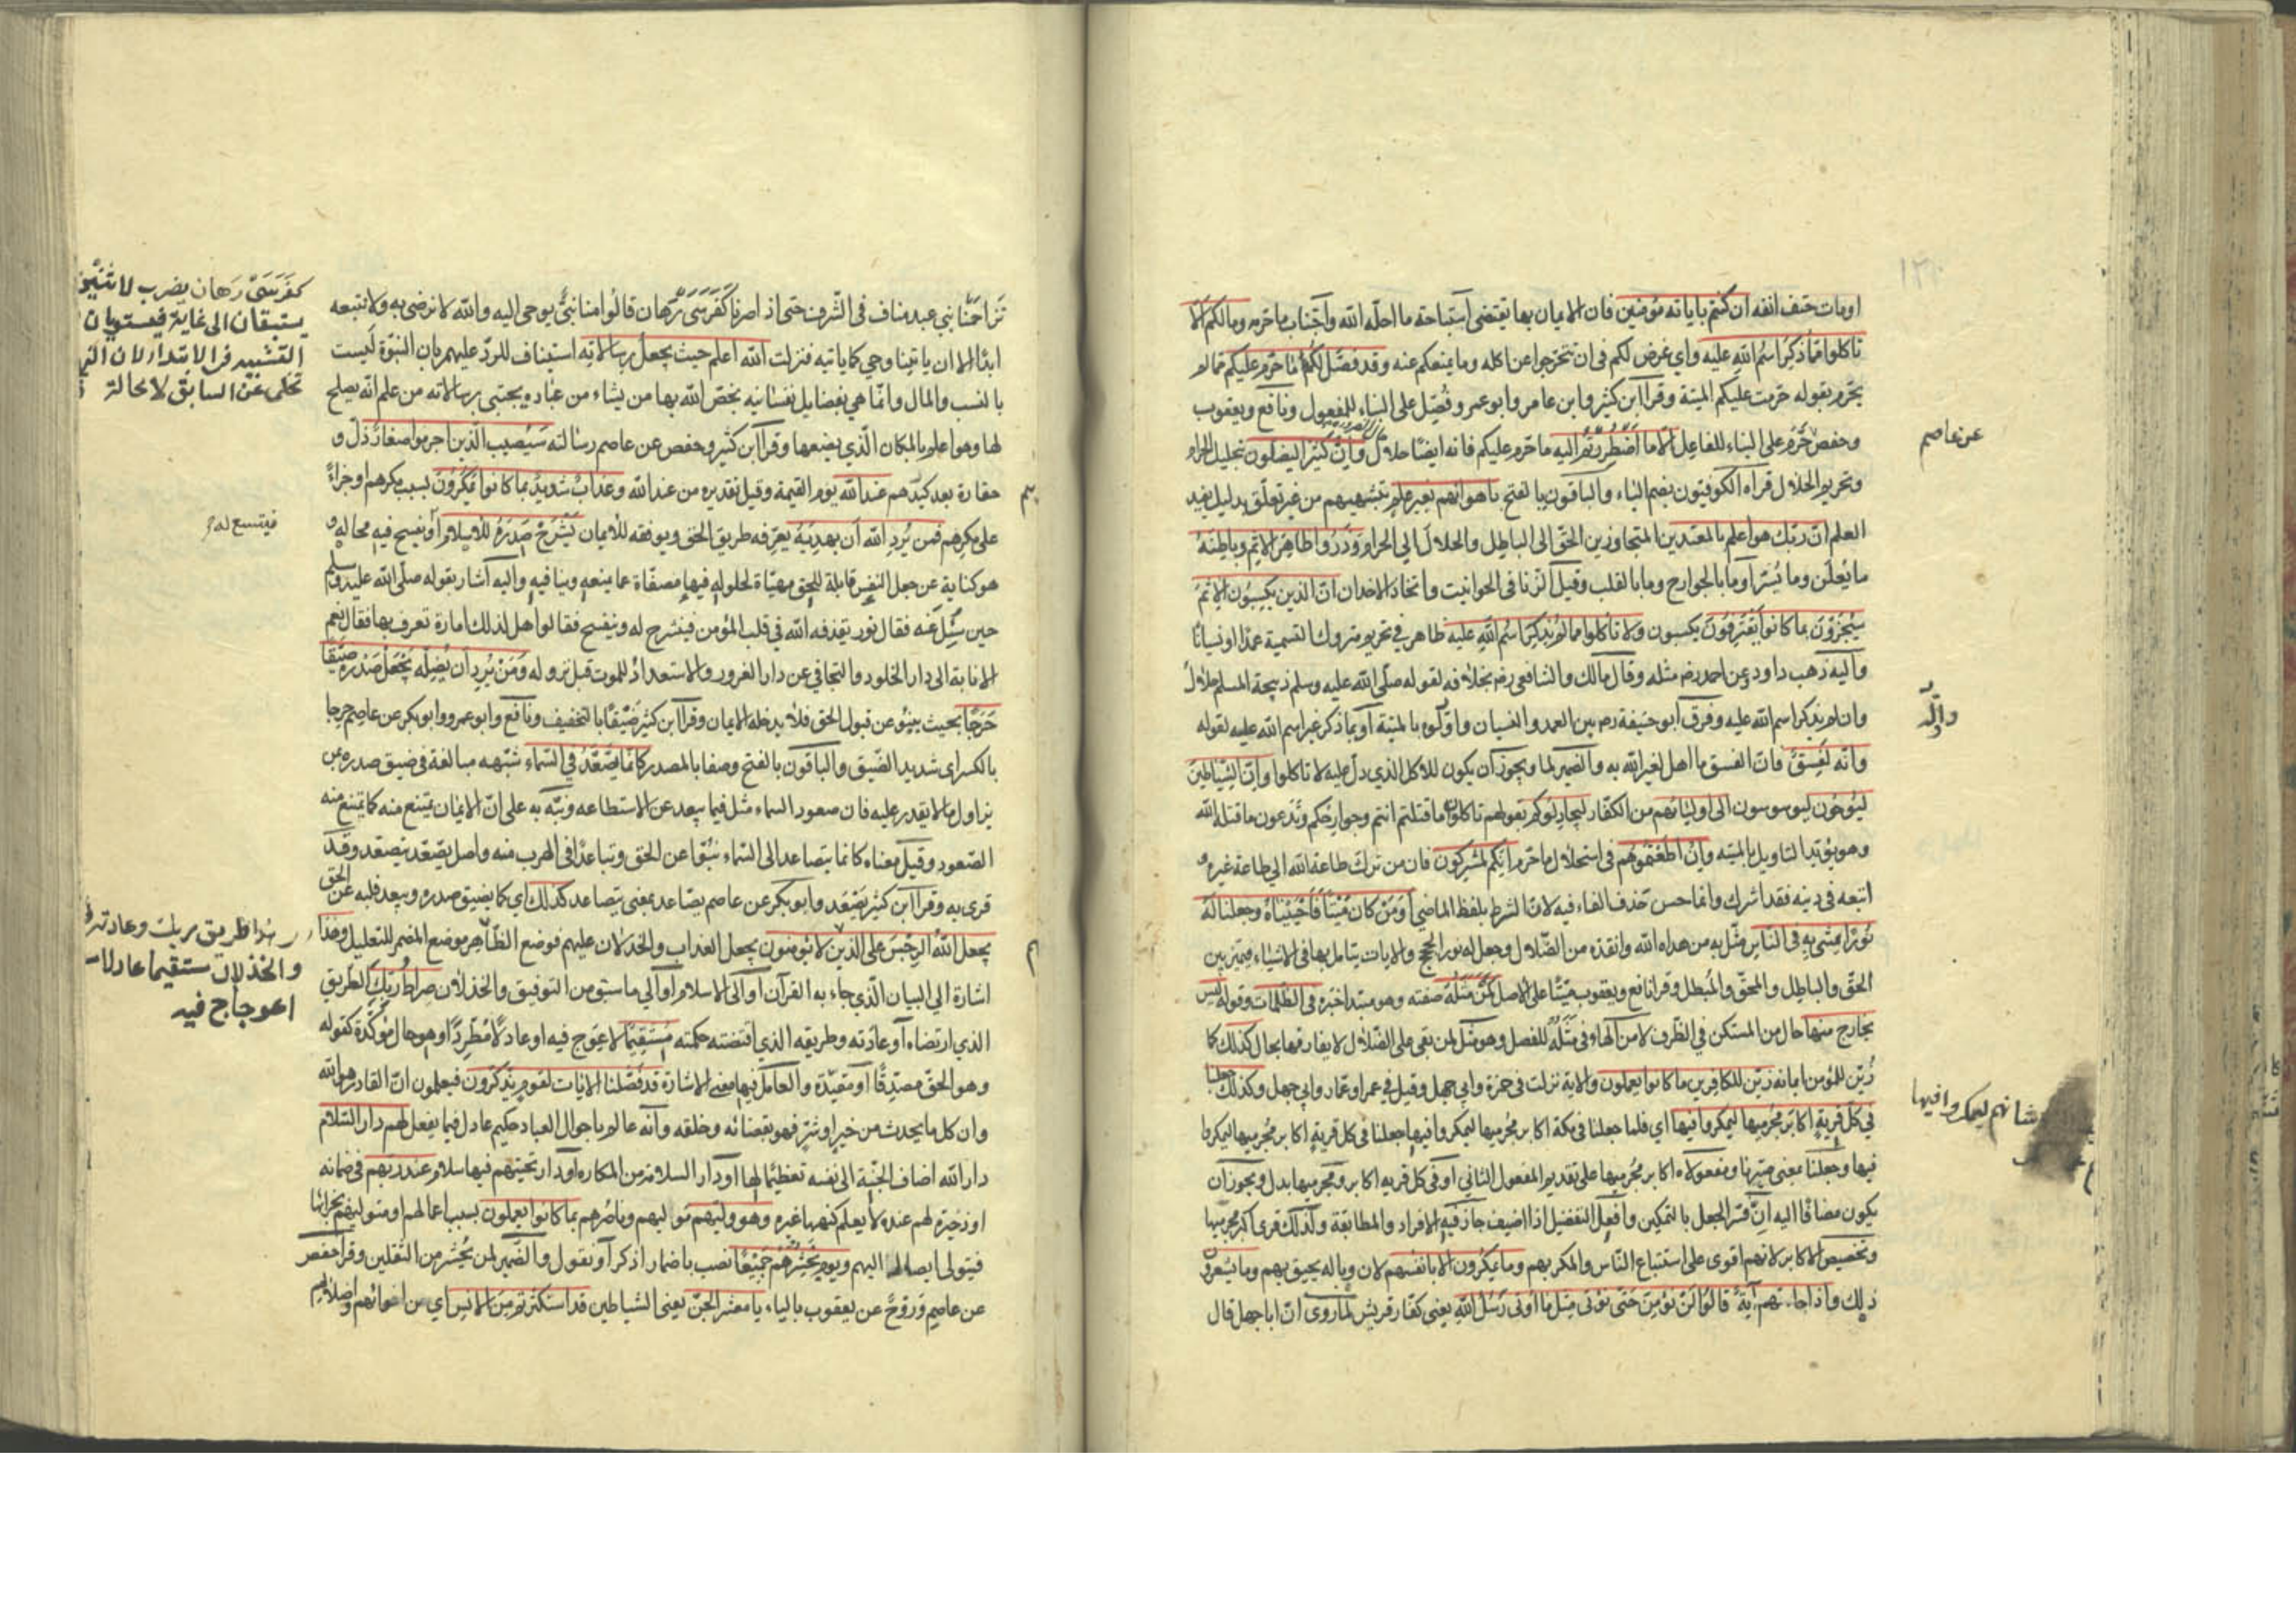 او مات حتف انفه ان كنتم باياته مؤمنين فان الايمان بها يقتضى استباحة ما احله الله واجتناب ما حرمه وما لكم الا
تاكلوا مما ذكر اسم الله عليه واي غرض لكم في ان تتحرجوا عن اكله وما يمنعكم عنه وقد فصل لكم ما حرم عليكم مما لم
يحرم بقوله حرمت عليكم الميتة وقرا ابن كثير وابن عامر وابو عمرو فصل على البناء للمفعول ونافع ويعقوب
وحفص حرم على البناء للفاعل الا ما اضطررتم اليه مما حرم عليكم فانه ايضا حلال وان كثيرا ليضلون بتحليل الحرام
وتحريم الحلال قراه الكوفيون بضم الياء والباقون بالفتح باهوائهم بغير علم بتشهيهم من غير تعلق بدليل يفيد
العلم ان ربك هو اعلم بالمعتدين المتجاوزين الحق الى الباطل والحلال الي الحرام وذروا ظاهر الاثم وباطنه
ما يعلن وما يسر او ما بالجوارح وما بالقلب وقيل الزنا في الحوانيت واتخاذ الاخدان ان الذين يكسبون الاثم
سيجزون بما كانوا يقترفون يكسبون ولا تاكلوا مما لم يذكر اسم الله عليه ظاهر في تحريم متروك التسمية عمدا او نسيانا
واليه ذهب داود وعن احمد رضه مثله وقال مالك والشافعي رضه بخلافه لقوله صلى الله عليه وسلم ذبيحة المسلم حلال
وان لم يذكر اسم الله عليه وفرق ابو حنيفة رحه بين العمد والنسيان واولوه بالميتة او بما ذكر غير اسم الله عليه لقوله
وانه لفسق فان الفسق ما اهل لغير الله به والضمير لما ويجوز ان يكون للاكل الذي دل عليه لا تاكلوا وان الشياطين
ليوحون ليوسوسون الى اوليائهم من الكفار ليجادلوكم بقولهم تاكلون ما قتلتم انتم وجوارحكم وتدعون ما قتله الله
وهو يؤيد التاويل بالميته وان اطعتموهم في استحلال ما حرم انكم لمشركون فان من ترك طاعة الله الي طاعة غيره و
اتبعه في دينه فقد اشرك وانما حسن حذف الفاء فيه لان الشرط بلفظ الماضي او من كان ميتا فاحييناه وجعلنا له
نورا يمشي به في الناس مثل به من هداه الله وانقذه من الضلال وجعل له نور الحجج والايات يتامل بها في الاشياء فيميز بين
الحق والباطل والمحق والمبطل وقرا نافع ويعقوب ميتا على الاصل كمن مثله صفته وهو مبتدا خبره في الظلمات وقوله ليس
بخارج منها حال من المستكن في الظرف لا من الهاء في مثله للفصل وهو مثل لمن بقي على الضلال لا يفارقها بحال كذلك كما
زين للمؤمن ايمانه زين للكافرين ما كانوا يعملون والاية نزلت في حمزة وابي جهل وقيل في عمر او عمار وابي جهل وكذلك جعلنا
في كل قرية اكابر مجرميها ليمكروا فيها اي فلما جعلنا في مكة اكابر مجرميها ليمكروا فيها جعلنا في كل قرية اكابر مجرميها ليمكروا
فيها وجعلنا بمعنى صيرنا ومفعولاه اكابر مجرميها على تقديم المفعول الثاني او في كل قريه اكابر ومجرميها بدل ويجوز ان
يكون مضافا اليه ان فسر الجعل بالتمكين وافعل التفضيل اذا اضيف جاز فيه الافراد والمطابقة ولذلك قرى اكبر مجرميها
وتخصيص الاكابر لانهم اقوى على استتباع الناس والمكر بهم وما يمكرون الا بانفسهم لان وباله يحيق بهم وما يشعرون
ذلك واذا جاءتهم آية قالوا لن نؤمن حتى نؤتى مثل ما اوتى رسل الله يعني كفار قريش لما روى ان ابا جهل قال
عن عاصم
شانهم ليمكروا فيها
تزاحمنا بني عبد مناف في الشرف حتى اذ اصرنا كفرسى رهان قالوا منا نبي يوحى اليه والله لا نرضى به ولا نتبعه
ابدا الا ان ياتينا وحي كما ياتيه فنزلت الله اعلم حيث يجعل رسالاته استيناف للرد عليهم بان النبوة ليست
بالنسب والمال وانما هي بفضايل نفسانيه يخص الله بها من يشاء من عباده يجتبى برسالاته من علم انه يصلح
لها وهو اعلم بالمكان الذي يضعها وقرا ابن كثير وحفص عن عاصم رسالته سيصيب الذين اجرموا صغار ذل و
حقارة بعد كبرهم عند الله يوم القيمة وقيل تقديره من عند الله وعذاب شديد بما كانوا يمكرون بسبب مكرهم او جزاء
على مكرهم فمن يرد الله ان يهديه يعرفه طريق الحق ويوفقه للايمان يشرح صدره للاسلام او يفسح فيه مجاله و
هو كناية عن جعل النفس قابلة للحق مهيأة لحلوله فيها مصفاة عما يمنعه وينافيه واليه اشار بقوله صلى الله عليه وسلم
حين سئل عنه فقال نور يقذفه الله في قلب المؤمن فينشرح له وينفسح فقالوا هل لذلك امارة تعرف بها فقال نعم
الانابة الى دار الخلود والتجافي عن دار الغرور والاستعداد للموت قبل نزوله ومن يرد ان يضله يجعل صدره ضيقا
حرجا بحيث ينبو عن قبول الحق فلا يدخله الايمان وقرا ابن كثير ضيقا بالتخفيف ونافع وابو عمرو وابو بكر عن عاصم حرجا
بالكسر اى شديد الضيق والباقون بالفتح وصفا بالمصدر كانما يصعد في السماء شبهه مبالغة في ضيق صدره بمن
يزاول ما لا يقدر عليه فان صعود السماء مثل فيما يبعد عن الاستطاعه ونبه به على ان الايمان يمتنع منه كما يمتنع منه
الصعود وقيل معناه كانما يتصاعد الى السماء نبوا عن الحق وتباعدا في الهرب منه واصل يصعد يتصعد وقد
قرى به وقرا ابن كثير يصعد وابو بكر عن عاصم يصاعد بمعنى يتصاعد كذلك اي كما يضيق صدره ويبعد قلبه عن الحق
يجعل الله الرجس على الذين لا يؤمنون يجعل العذاب والخذلان عليهم فوضع الظاهر موضع المضمر للتعليل وهذا
اشارة الي البيان الذي جاء به القرآن او الى الاسلام او الي ما سبق من التوفيق والخذلان صراط ربك الطريق
الذي ارتضاه او عادته وطريقه الذي اقتضته حكمته مستقيما لا عوج فيه او عادلا مطردا وهو حال مؤكدة كقوله
وهو الحق مصدقا او مقيدة والعامل فيها معنى الاشارة قد فصلنا الايات لقوم يذكرون فيعلمون ان القادر هو الله
وان كل ما يحدث من خير او شر فهو بقضائه وخلقه وانه عالم باحوال العباد حكيم عادل فيما يفعل لهم دار السلام
دار الله اضاف الجنة الى نفسه تعظيما لها او دار السلامة من المكاره او دار تحيتهم فيها سلام عند ربهم في ضمانه
او ذخيرة لهم عنده لا يعلم كنهها غيره وهو وليهم مواليهم وناصرهم بما كانوا يعملون بسبب اعمالهم او متوليهم بجزائها
فيتولى ايصاله اليهم ويوم يحشرهم جميعا نصب باضمار اذكر او نقول والضمير لمن يحشر من الثقلين وقرا حفص
عن عاصم وروح عن يعقوب بالياء يا معشر الجن يعني الشياطين قد استكثرتم من الانس اي من اغوائهم واضلالهم
كفرسى رهان يضرب لاثنين
يستبقان الى غاية فيستويان
التشبيه في الابتداء لان
تخلى عن السابق لا محالة
فيتسع له
هذا طريق ربك وعادته في
والخذلان مستقيما عادلا
اعوجاج فيه